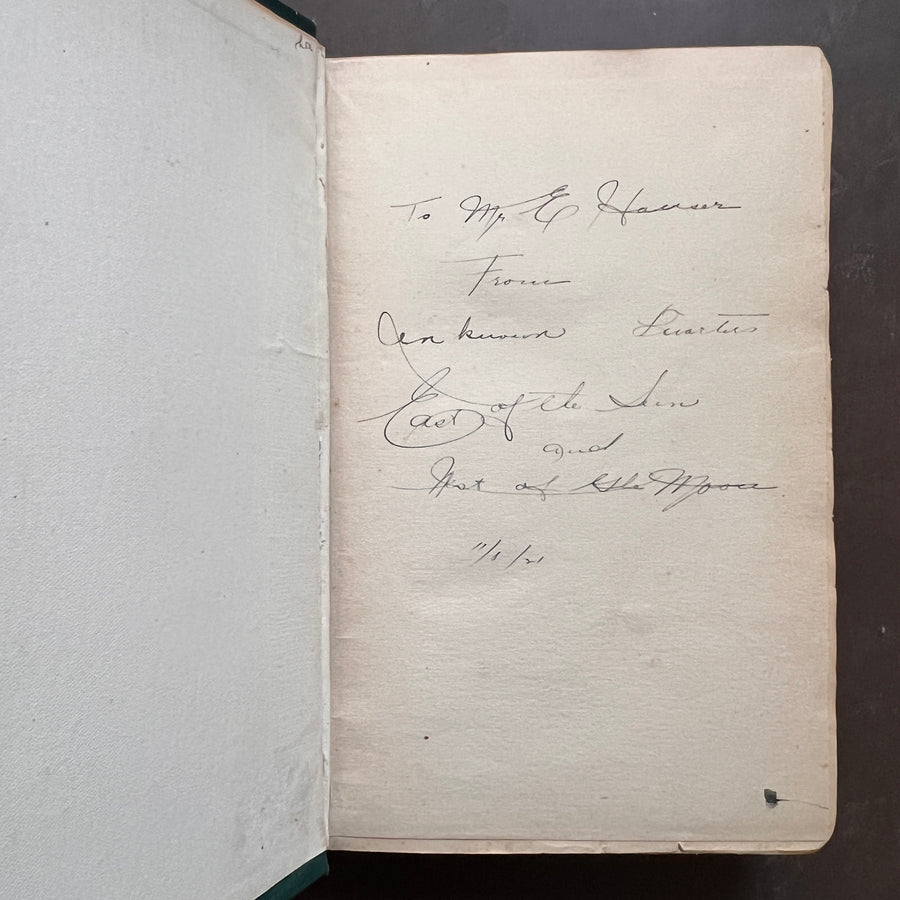 To Mr E Hauser
From
Unknown Quarters
East of the Sun
and
West of the Moon
11/8/21